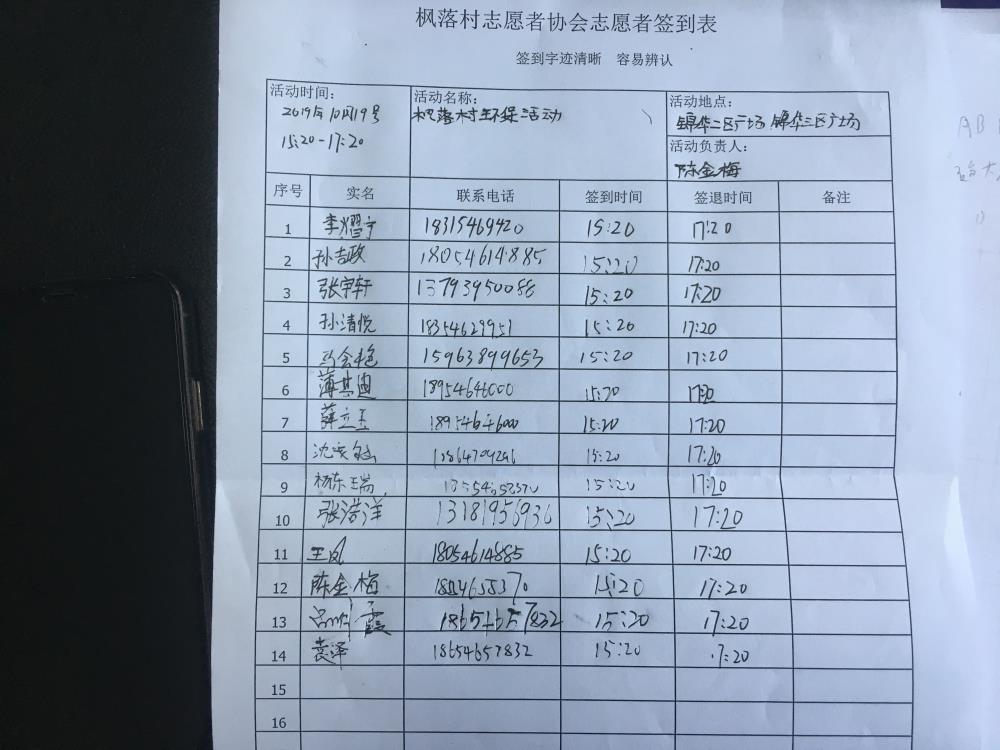 枫落村志愿者协会志愿者签到表
签到字迹清晰 容易辨认
活动时间:
2019年10月19号
15:20-17:20
活动名称:
枫落村环保活动
活动地点:
锦华二区广场 锦华三区广场
活动负责人:
陈金梅
序号 实名 联系电话 签到时间 签退时间 备注
1 李熠宁 18315469420 15:20 17:20
2 孙吉政 18054614885 15:20 17:20
3 张宇轩 13793950088 15:20 17:20
4 孙清悦 18354629951 15:20 17:20
5 马会艳 15963899653 15:20 17:20
6 薄其迪 18954646000 15:20 17:20
7 薛立玉 18954646000 15:20 17:20
8 15:20 17:20
9 杨东瑞 15:20 17:20
10 张浩洋 13181956936 15:20 17:20
11 王凤 18054614885 15:20 17:20
12 陈金梅 15:20 17:20
13 霞 18654657832 15:20 17:20
14 袁泽 18654657832 15:20 17:20
15
16
AB